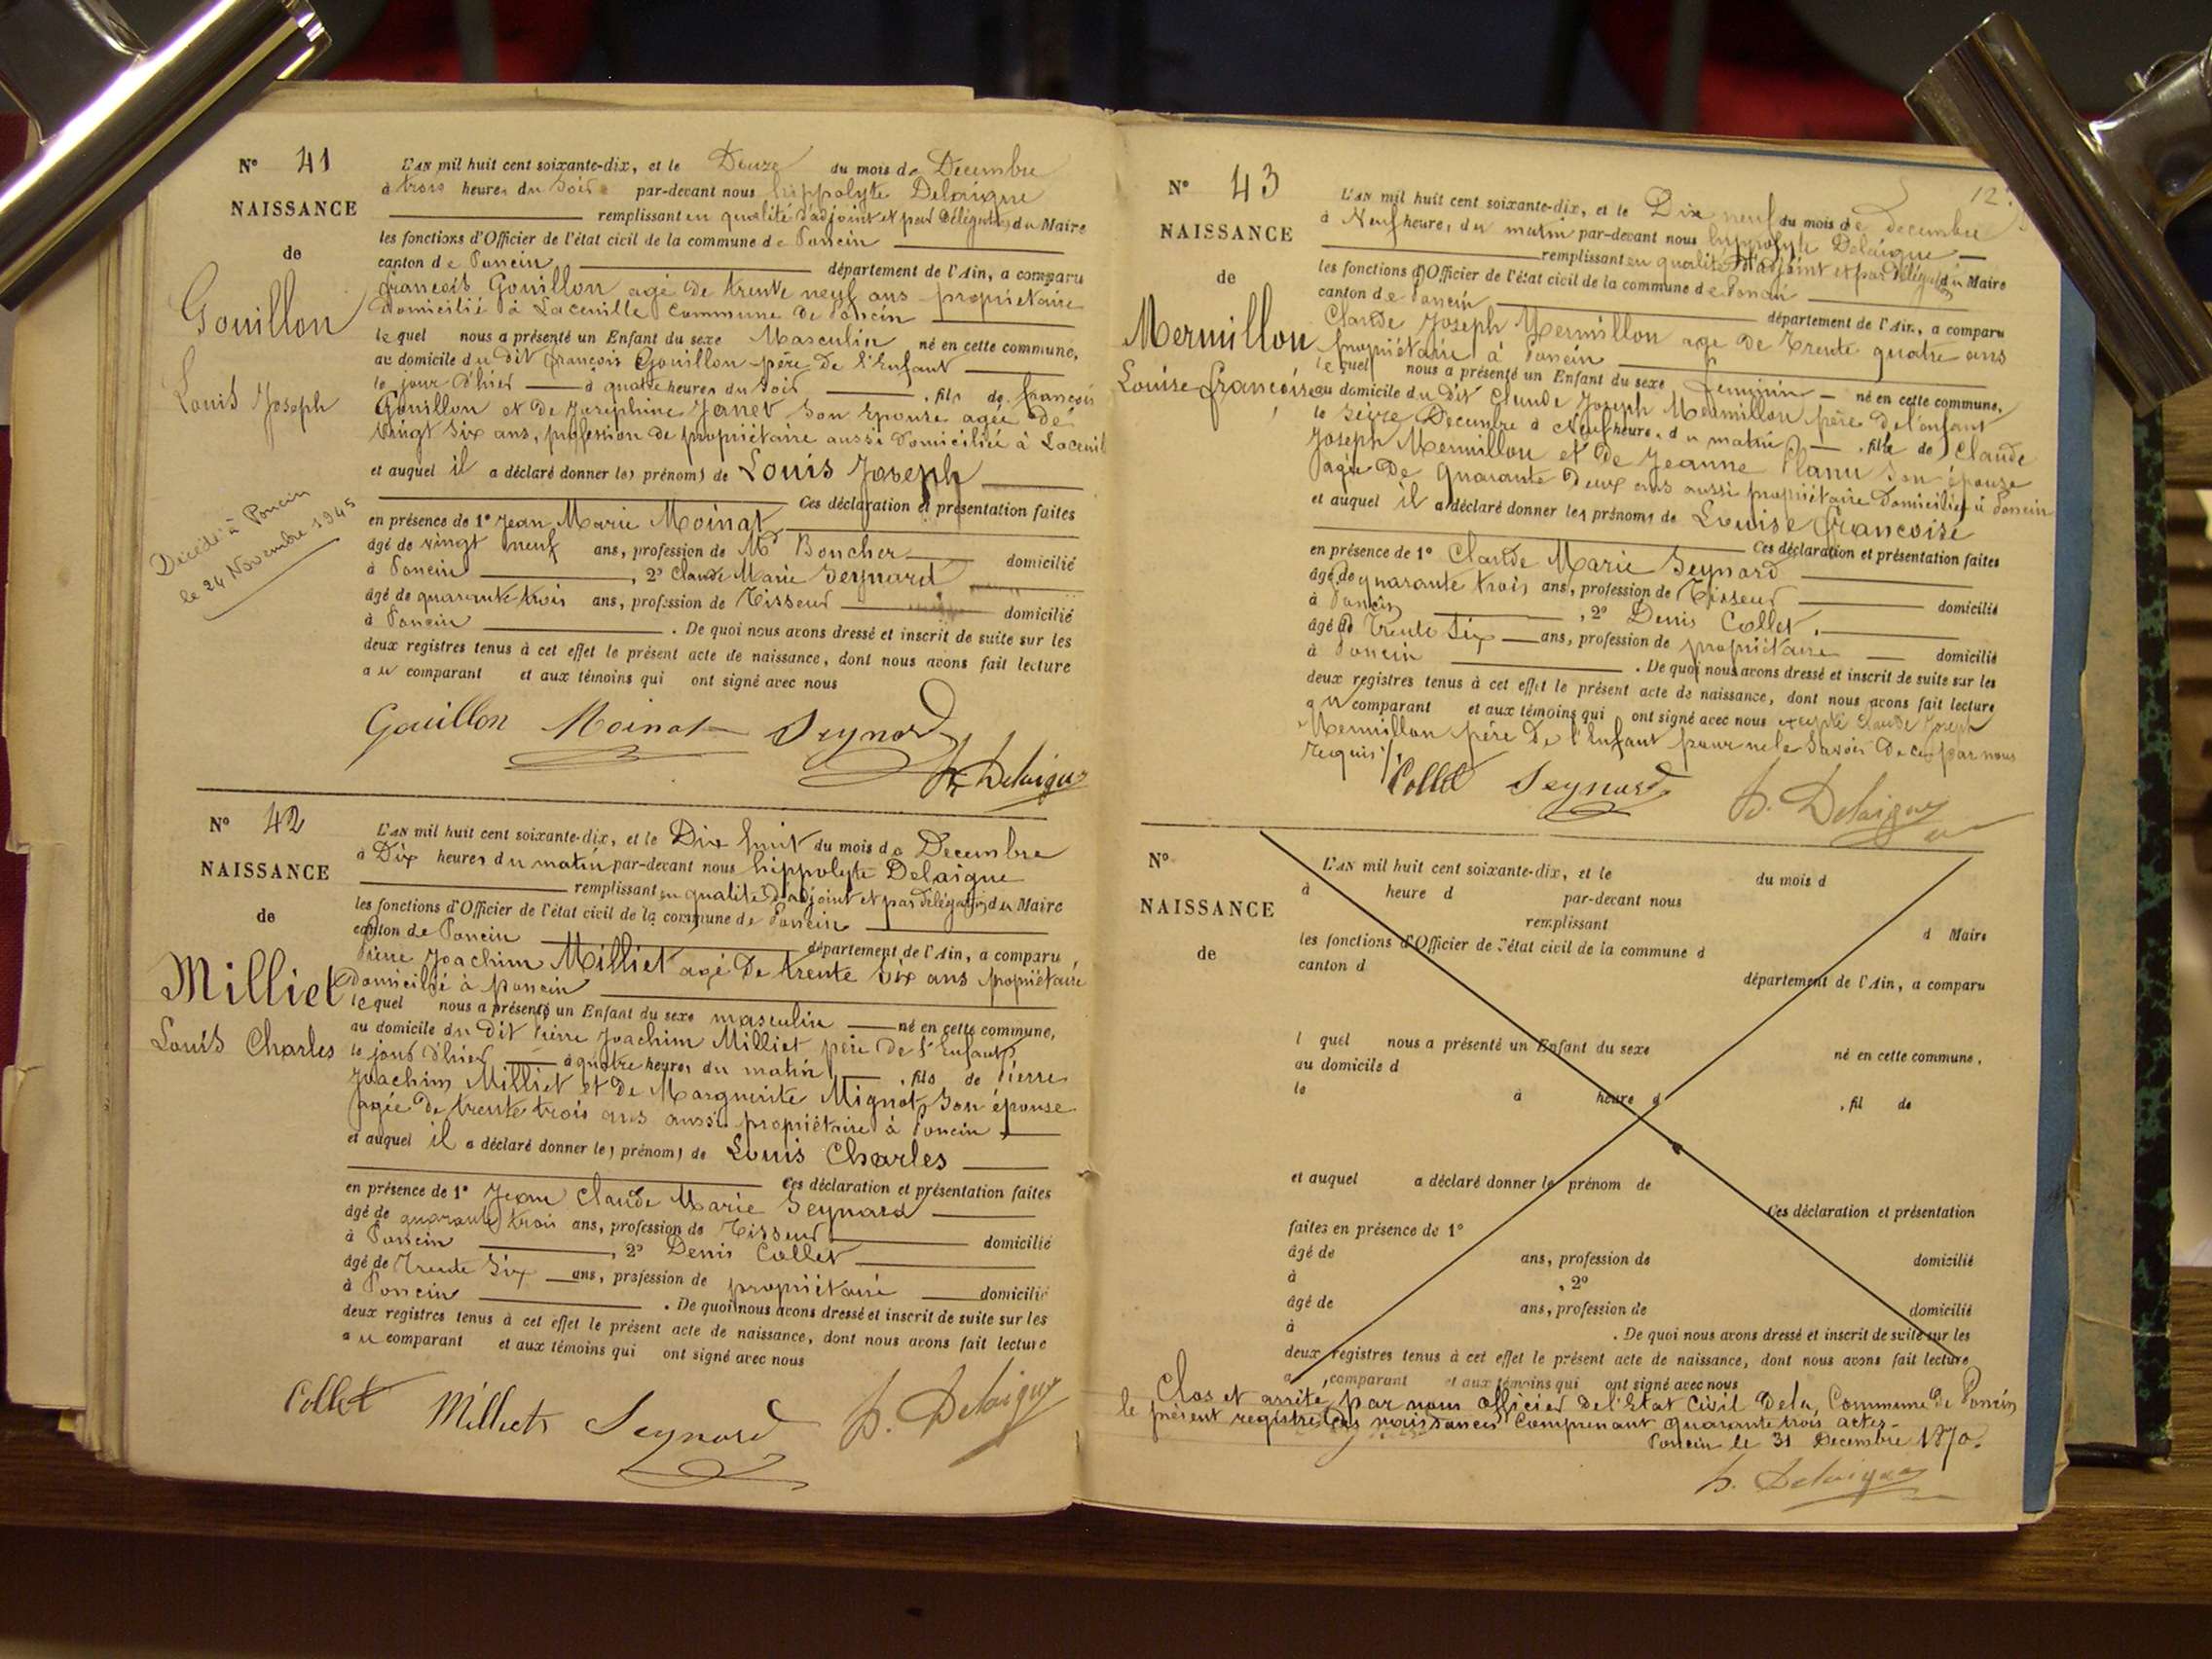 N° 41
NAISSANCE
de
Gouillon
Louis Joseph
Décédé à Poncin
le 24 Novembre 1945
L'AN mil huit cent soixante-dix, et le Douze du mois de Decembre
à trois heures du soir par-devant nous hippolyte Delaigue
remplissant en qualité d'adjoint et par délégation du Maire
les fonctions d'Officier de l'état civil de la commune de Poncin
canton de Poncin département de l'Ain, a comparu
françois Gouillon agé de trente neuf ans propriétaire
domicilié à Lacueille commune de Poncin
lequel nous a présenté un Enfant du sexe Masculin né en cette commune,
au domicile du dit françois Gouillon père de l'Enfant
le jour d'hier à quatre heures du soir , fils de françois
Gouillon et de Josephine Janet son épouse agée de
vingt six ans, profession de propriétaire aussi domiciliée à Lacueil
et auquel il a déclaré donner les prénoms de Louis Joseph
Ces déclaration et présentation faites
en présence de 1° Jean Marie Moinat
âgé de vingt neuf ans, profession de Md Boucher domicilié
à Poncin , 2° Claude Marie Seynard
âgé de quarante trois ans, profession de Tisseur domicilié
à Poncin . De quoi nous avons dressé et inscrit de suite sur les
deux registres tenus à cet effet le présent acte de naissance, dont nous avons fait lecture
au comparant et aux témoins qui ont signé avec nous
Gouillon Moinat Seynard
h. Delaigue
N° 42
NAISSANCE
de
Milliet
Louis Charles
L'AN mil huit cent soixante-dix, et le Dix huit du mois de Decembre
à Dix heures du matin par-devant nous hippolyte Delaigue
remplissant en qualité d'adjoint et par délégation du Maire
les fonctions d'Officier de l'état civil de la commune de Poncin
canton de Poncin département de l'Ain, a comparu
Pierre Joachim Milliet agé de trente six ans propriétaire
domicilié à poncin
lequel nous a présenté un Enfant du sexe masculin né en cette commune,
au domicile du dit Pierre Joachim Milliet père de l'Enfant
le jour d'hier à quatre heures du matin , fils de Pierre
Joachim Milliet et de Marguerite Mignot son épouse
agée de trente trois ans aussi propriétaire à Poncin
et auquel il a déclaré donner les prénoms de Louis Charles
Ces déclaration et présentation faites
en présence de 1° Jean Claude Marie Seynard
âgé de quarante trois ans, profession de Tisseur domicilié
à Poncin , 2° Denis Collet
âgé de Trente Six ans, profession de propriétaire domicilié
à Poncin . De quoi nous avons dressé et inscrit de suite sur les
deux registres tenus à cet effet le présent acte de naissance, dont nous avons fait lecture
au comparant et aux témoins qui ont signé avec nous
Collet Milliet Seynard h. Delaigue
12
N° 43
NAISSANCE
de
Mermillon
Louise françoise
L'AN mil huit cent soixante-dix, et le Dix neuf du mois de decembre
à Neuf heures du matin par-devant nous hippolyte Delaigue
remplissant en qualité d'adjoint et par délégation du Maire
les fonctions d'Officier de l'état civil de la commune de Poncin
canton de Poncin département de l'Ain, a comparu
Claude Joseph Mermillon agé de trente quatre ans
propriétaire à Poncin
lequel nous a présenté un Enfant du sexe feminin né en cette commune,
au domicile du dit Claude Joseph Mermillon père de l'enfant
le seize Decembre à Neuf heures du matin , fille de Claude
Joseph Mermillon et de Jeanne son épouse
agée de quarante deux ans aussi propriétaire domiciliée à Poncin
et auquel il a déclaré donner les prénoms de Louise françoise
Ces déclaration et présentation faites
en présence de 1° Claude Marie Seynard
âgé de quarante trois ans, profession de Tisseur domicilié
à Poncin , 2° Denis Collet,
âgé de Trente Six ans, profession de propriétaire domicilié
à Poncin . De quoi nous avons dressé et inscrit de suite sur les
deux registres tenus à cet effet le présent acte de naissance, dont nous avons fait lecture
au comparant et aux témoins qui ont signé avec nous excepté Claude Joseph
Mermillon père de l'Enfant pour ne le savoir de ce par nous
requis
Collet Seynard h. Delaigue
N°
NAISSANCE
de
L'AN mil huit cent soixante-dix, et le du mois d
à heure d par-devant nous
remplissant d Maire
les fonctions d'Officier de l'état civil de la commune d
canton d département de l'Ain, a comparu
l quel nous a présenté un Enfant du sexe né en cette commune,
au domicile d
le à heure d , fil de
et auquel a déclaré donner le prénom de
Ces déclaration et présentation
faites en présence de 1°
âgé de ans, profession de domicilié
à , 2°
âgé de ans, profession de domicilié
à . De quoi nous avons dressé et inscrit de suite sur les
deux registres tenus à cet effet le présent acte de naissance, dont nous avons fait lecture
a comparant et aux témoins qui ont signé avec nous
Clos et arrêté par nous officier de l'Etat Civil de la Commune de Poncin
le present registre des naissances comprenant quarante trois actes.
Poncin le 31 Decembre 1870.
h. Delaigue